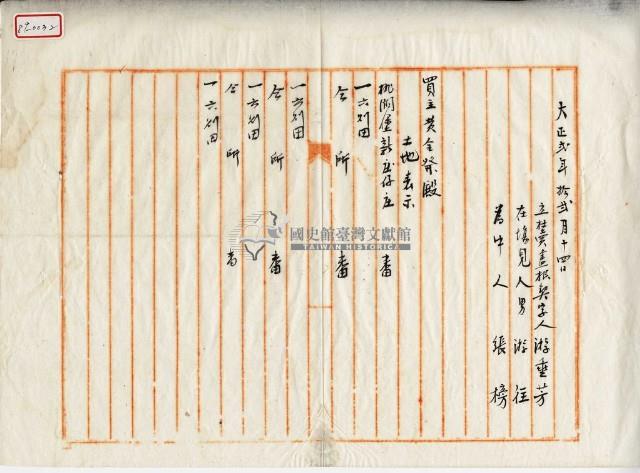 大正弍年拾弍月十四日
立杜賣盡根契字人 游垂芳
在塲見人男 游往
為中人 張榜
買主黃金發殿
土地表示
桃澗堡新庄仔庄 番
一六 則田
仝所 番
一六 則田
仝所 番
一六 則田
仝所 番
一六 則田
國史館臺灣文獻館
TAIWAN HISTORICA